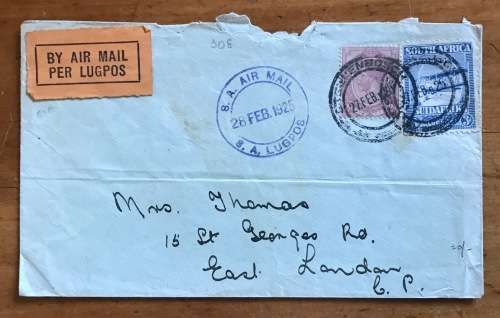 BY AIR MAIL
PER LUGPOS
308
S. A. AIR MAIL
28 FEB. 1925
S. A. LUGPOS
27 FEB
SOUTH AFRICA
Mrs. Thomas
15 St Georges Rd.
East London
C. P.